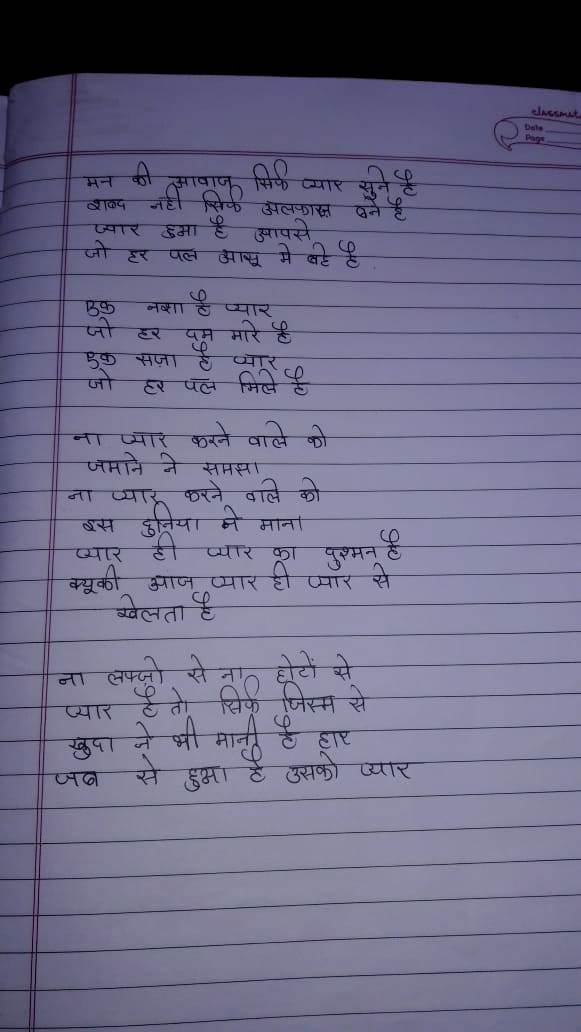 classmate
Date
Page
मन की आवाज सिर्फ प्यार सुने है
शब्द नही सिर्फ अलफाज बने है
प्यार हुआ है आपसे
जो हर पल आसू मे बहे है
एक नशा है प्यार
जो हर दम मारे है
एक सजा है प्यार
जो हर पल मिले है
ना प्यार करने वाले को
जमाने ने समझा
ना प्यार करने वाले को
इस दुनिया ने माना
प्यार ही प्यार का दुश्मन है
क्यूकी आज प्यार ही प्यार से
खेलता है
ना लफ्जो से ना होटों से
प्यार है तो सिर्फ जिस्म से
खुदा ने भी मानी है हार
जब से हुआ है उसको प्यार